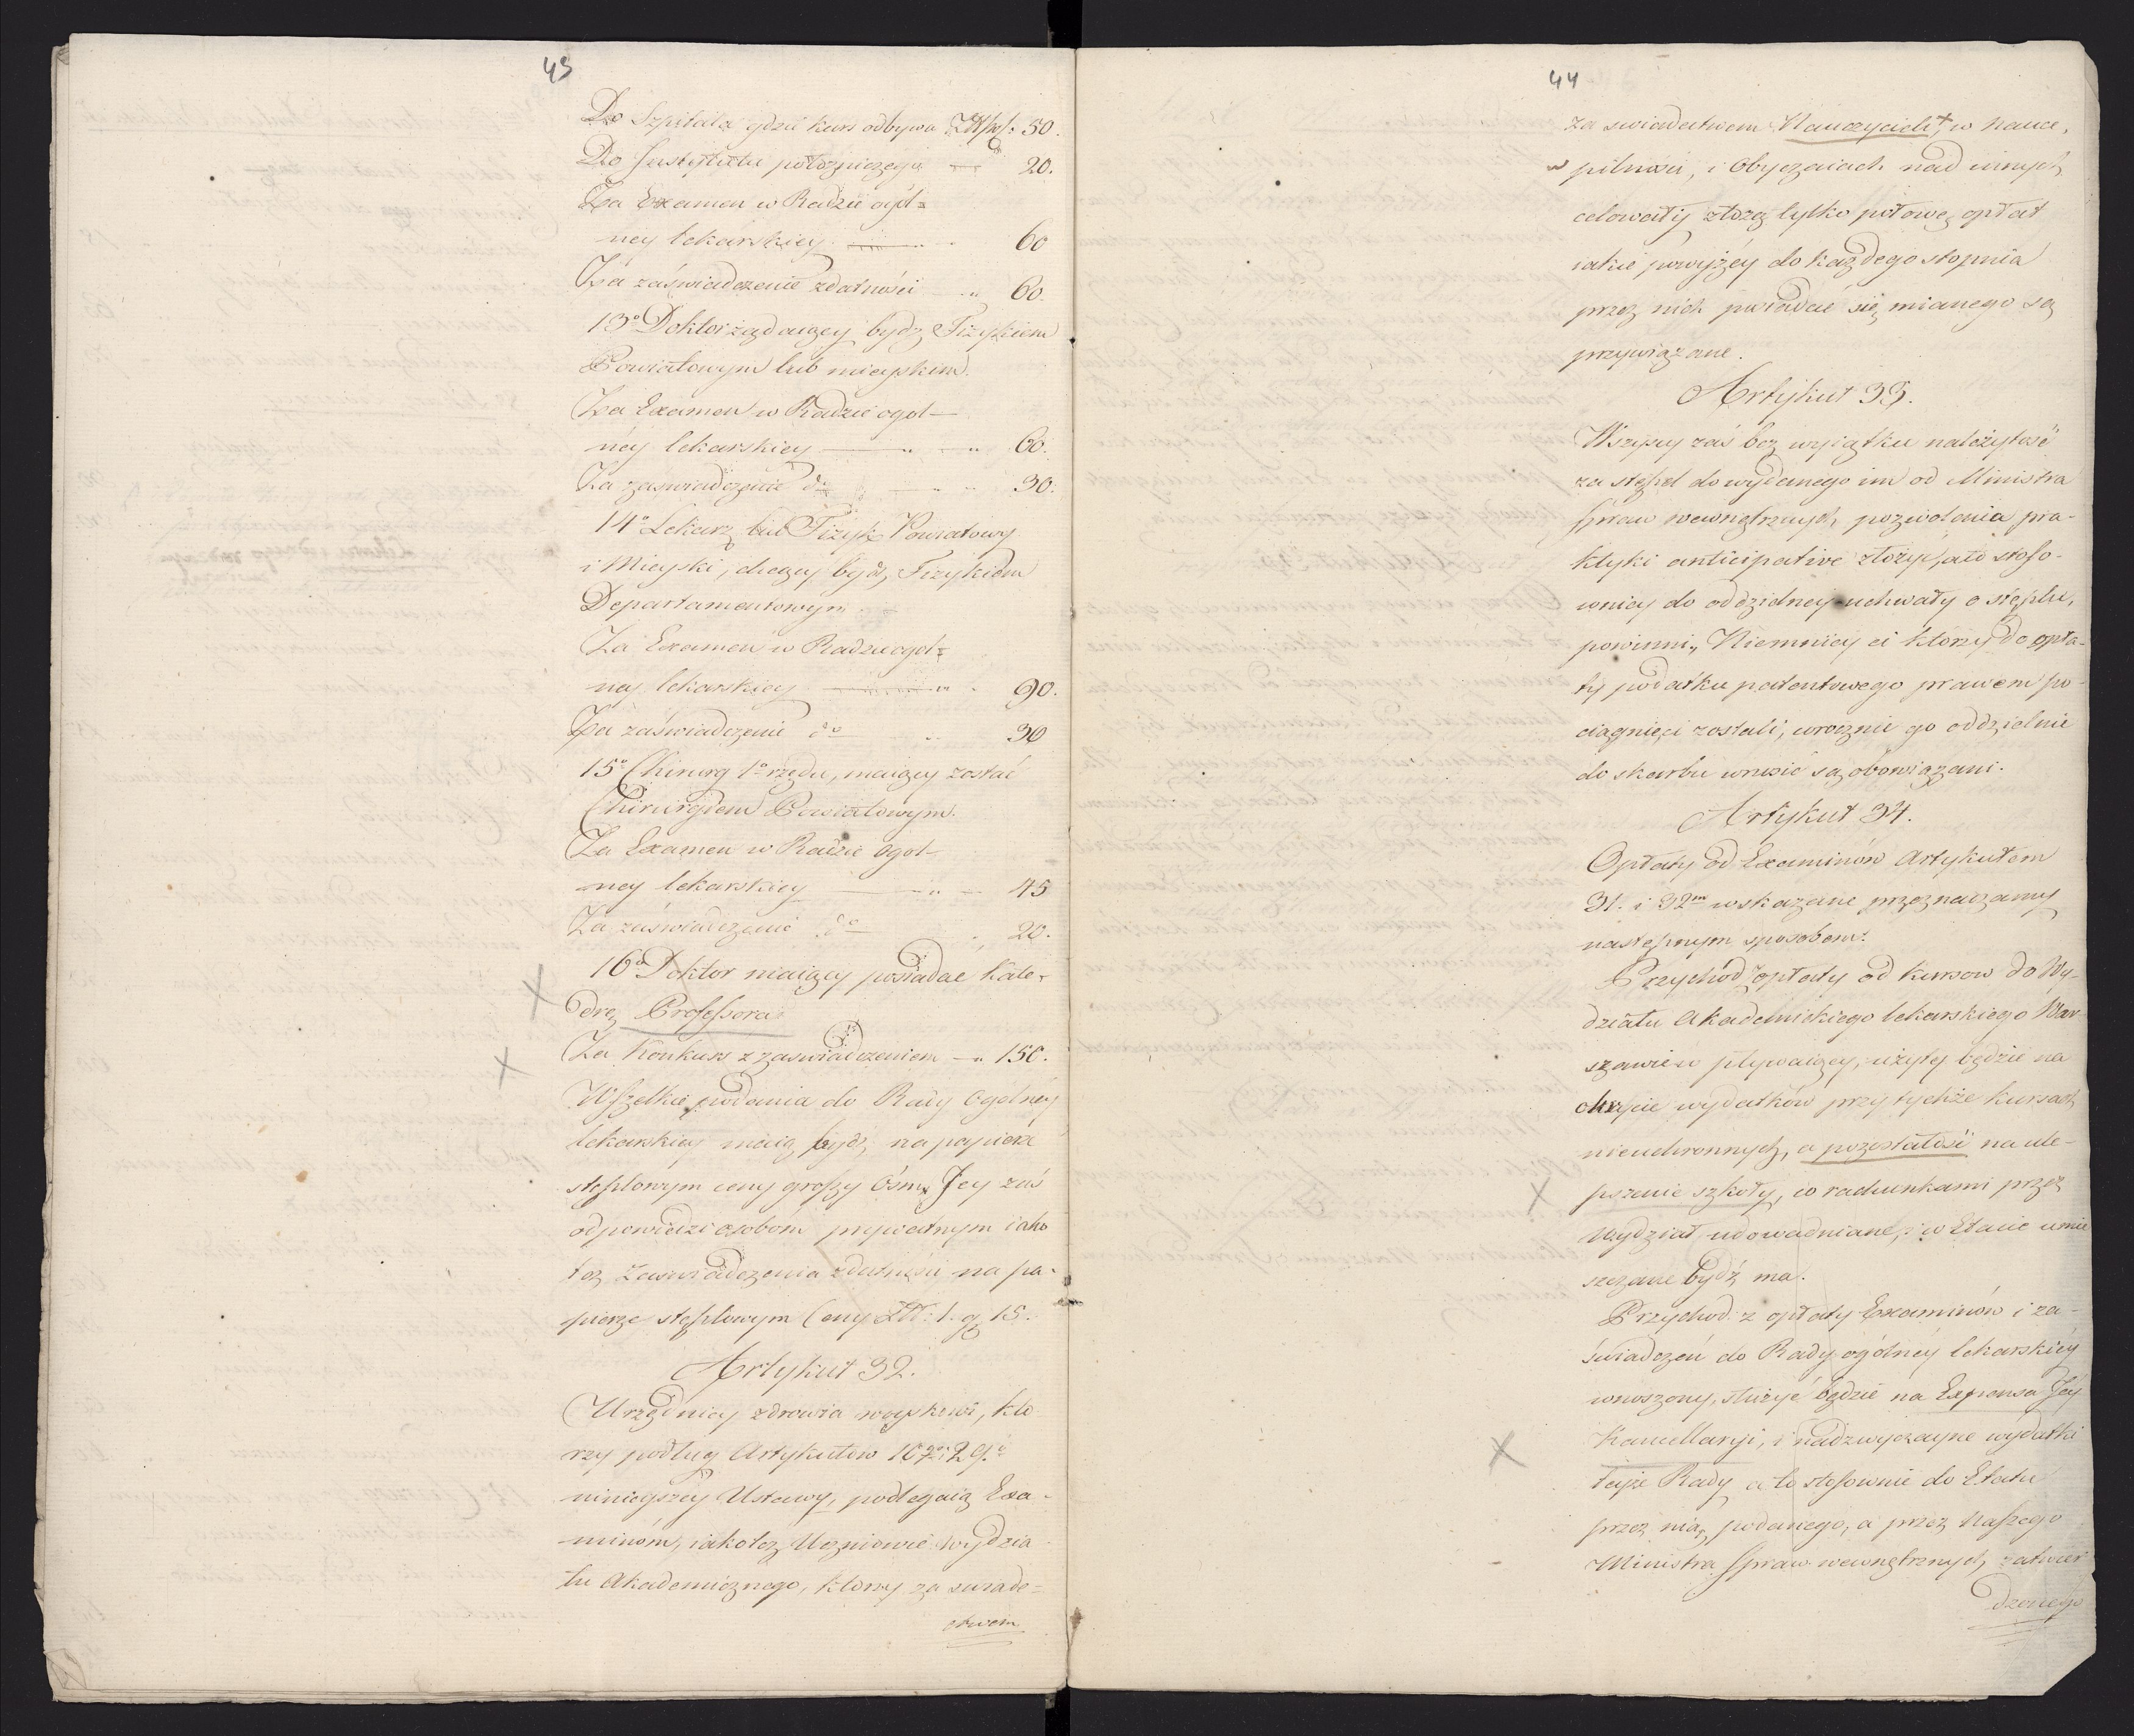 43
Do Szpitala gdzie kurs odbywa Złt pol: 50.
Do Instytutu położniczego — 20.
Za Examen w Radzie ogól=
ney lekarskiey — 60
Za zaświadczenie zdatności — „ 60.
13° Doktor żądaiący bydz Fizykiem
Powiatowym lub mieyskim.
Za Examen w Radzie ogol—
néy lekarskiey — „ — „ 60.
Za zaświadczenie do — „ „ 30.
14° Lekarz lub Fizyk Powiatowy
i Mieyski, chcący bydź Fizykiem
Departamentowym.
Za Examen w Radzie ogol=
ney lekarskiey — „ 90.
Za zaświadczenie do „ 30
15° Chirurg 1° rzędu, maiący zostać
Chirurgiem Powiatowym.
Za Examen w Radzie ogol—
ney lekarskiey — „ — 45
Za zaświadczenie do „ 20.
16° Doktor maiący posiadac Kate-
drę Professora
Za Konkurs z zaświadczeniem — „ 150.
Wszelkie podania do Rady Ogólney
lekarskiey maią bydź na papierze
stęplowym ceny groszy Ośm, Jey zaś
odpowiedzi osobom prywatnym iako
też Zaświadczenia zdatności na pa-
pierze stęplowym Ceny Złt: 1. gr 15.
Artykuł 32.
Urzędnicy zdrowia woyskowi, któ
rzy podług Artykułow 16 29°
ninieyszey Ustawy, podlegaią Exa-
minóm, iakoteż Uczniowie wydzia
łu Akademicznego, którzy za świade=
ctwem
44
za świadectwem Nauczycieli +, w nauce,
w pilności, i obyczaiach nad innych
celowały złożą tylko połowę opłat
iakie powyżéy do każdego stopnia
przez nich posiadać się mianego są
przywiązane.
Artykuł 33.
Wszyscy zaś bez wyiątku należytość
za stępel do wydanego im od Ministra
Spraw wewnętrznych pozwolenia pra-
ktyki anticipative złożyć, a to stoso-
wniey do oddzielney uchwały o stęplu,
powinni„ Niemniey ci którzy do opła-
ty podatku patentowego prawem po-
ciągnięci zostali, wrocznie go oddzielnie
do skarbu wnosić są obowiązani.
Artykuł 34.
Opłaty od Examinów Artykułem
31. i 32m wskazane przeznaczamy
następnym sposobem.
Przychód z opłaty od kursow do Wy-
działu Akademickiego lekarskiego War
szawie w pływaiący, użyty będzie na
okrycie wydatków przy tychże kursach
nieuchronnych, a pozostałość na ule-
pszenie szkoły, co rachunkami przez
Wydział udowadniane, i w Etacie umie
szczane bydź ma.
Przychod z opłaty Examinów i za-
świadczeń do Rady ogólnéy lekarskiéy
wnoszony, służyć będzie na Expensa Jéy
Kancellaryi, i nadzwyczayne wydatki
teyże Rady a to stosownie do Etatu
przez nią podanego, a przez Naszego
Ministra Spraw wewnętrznych zatwier
dzonego